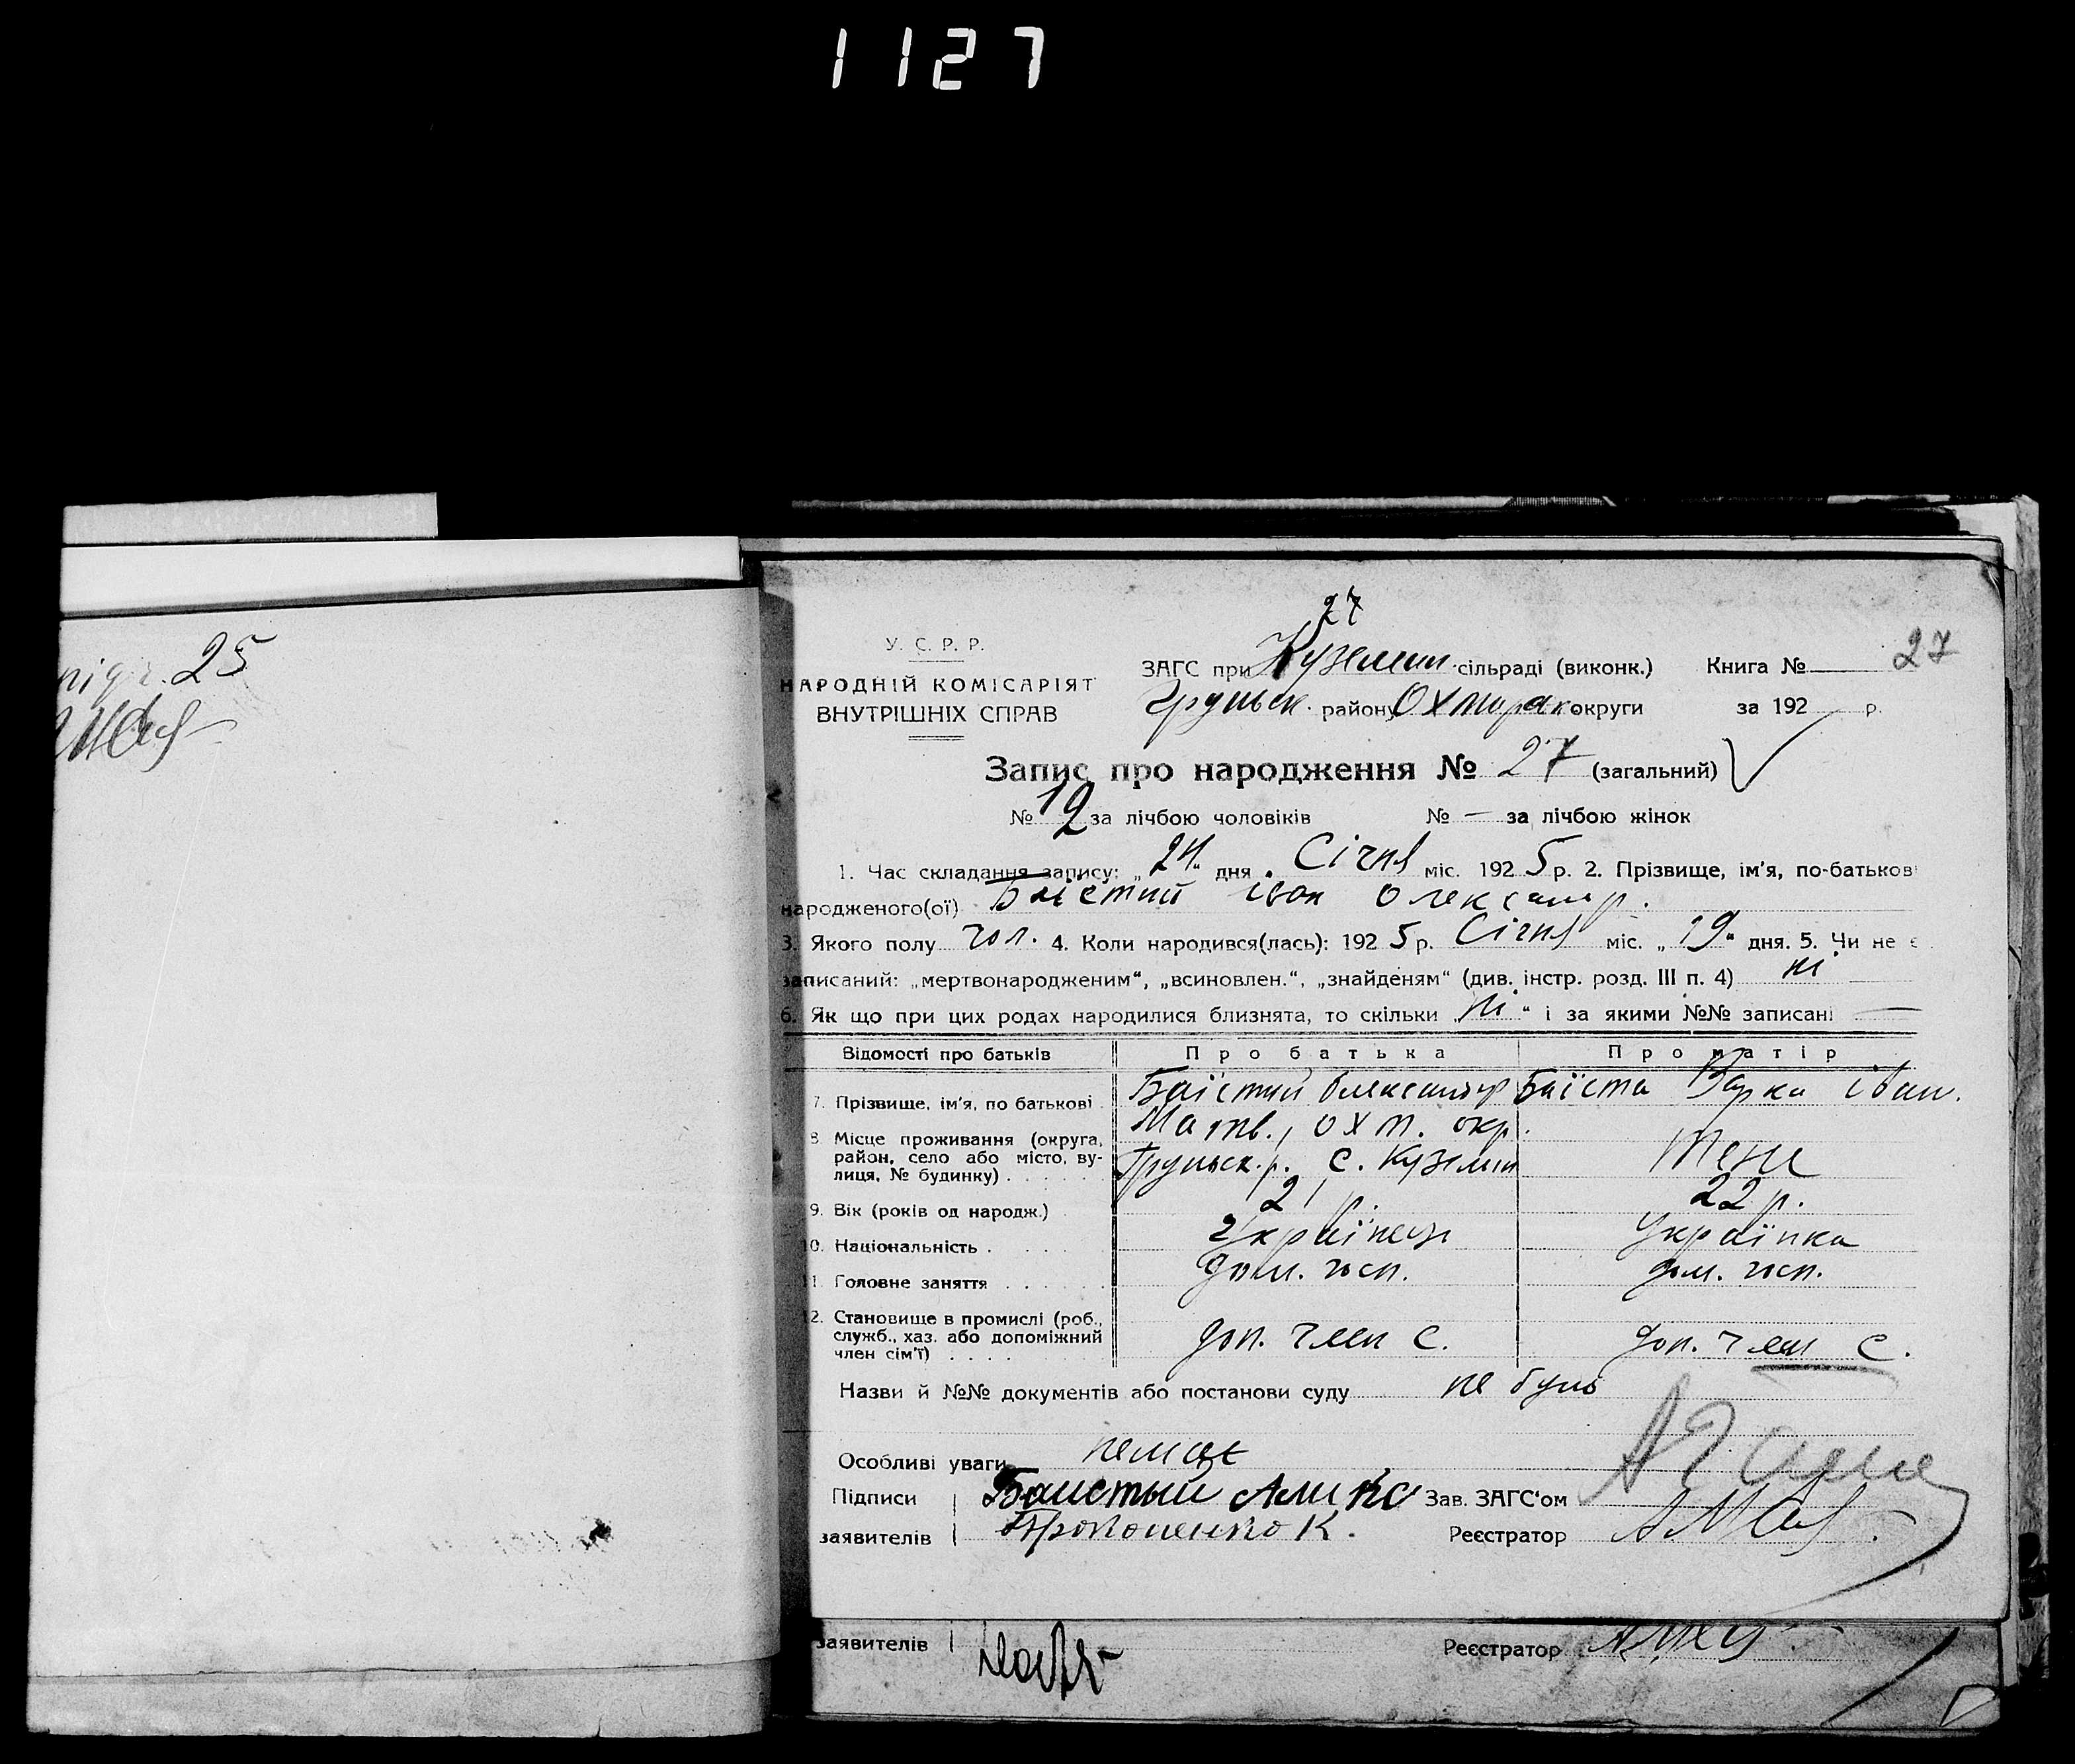 1127
25
27
У. С. Р. Р.
НАРОДНІЙ КОМІСАРІЯТ
ВНУТРІШНІХ СПРАВ
ЗАГС при Куземин. сільраді (виконк.) Книга № 27
Груньск. району Охтирск округи за 192 р.
Запис про народження № 27 (загальний)
№ 19 за лічбою чоловіків № — за лічбою жінок
1. Час складання запису: „24“ дня Січня міс. 1925 р. 2. Прізвище, ім'я, по-батькові
народженого(ої) Баїстий Іван Олександр.
3. Якого полу чол. 4. Коли народився(лась): 1925 р. Січня міс. „19“ дня. 5. Чи не є
записаний: „мертвонародженим“, „всиновлен.“, „знайденям“ (див. інстр. розд. III п. 4) ні
6. Як що при цих родах народилися близнята, то скільки „ні“ і за якими №№ записані —
Відомості про батьків Про батька Про матір
7. Прізвище, ім'я, по батькові Баїстий Олександр Баїста Варка Іван.
Матв., Охт. окр.
8. Місце проживання (округа, район, село або місто, вулиця, № будинку) Груньск. р. с. Куземин Теж
9. Вік (років од народж.) 21 р. 22 р.
10. Національність Українець Українка
11. Головне заняття дом. госп. дом. госп.
12. Становище в промислі (роб., служб., хаз. або допоміжний член сім'ї) доп. член с. доп. член с.
Назви й №№ документів або постанови суду не було
Особливі уваги немає
Підписи Баистый Зав. ЗАГС'ом
заявителів Прокопенко К. Реєстратор
заявителів Реєстратор